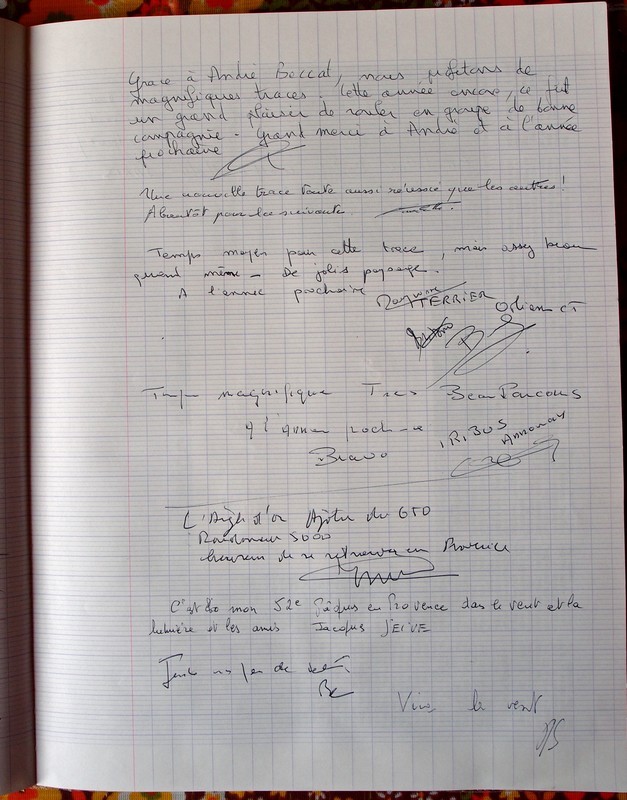 Grace à André Boccal, nous profitons de
magnifiques traces. Cette année encore, ce fut
un grand plaisir de rouler en groupe de bonne
compagnie. Grand merci à André et à l'année
prochaine
Une nouvelle trace toute aussi réussie que les autres!
A bientôt pour la suivante.
Temps moyen pour cette trace, mais assez beau
quand même - De jolis paysage.
A l'année prochaine
TERRIER
Temps magnifique Tres Beau Parcours
A l'Année prochaine
IRIBUS
Bravo
Annonay
L'Aigle d'or du GTD
Randonneur 5000
heureux de se retrouver en Provence
C'est do mon 52e Pâques en Provence dans le vent et la
lumière et les amis Jacques SEIVE
de
Vive le vent